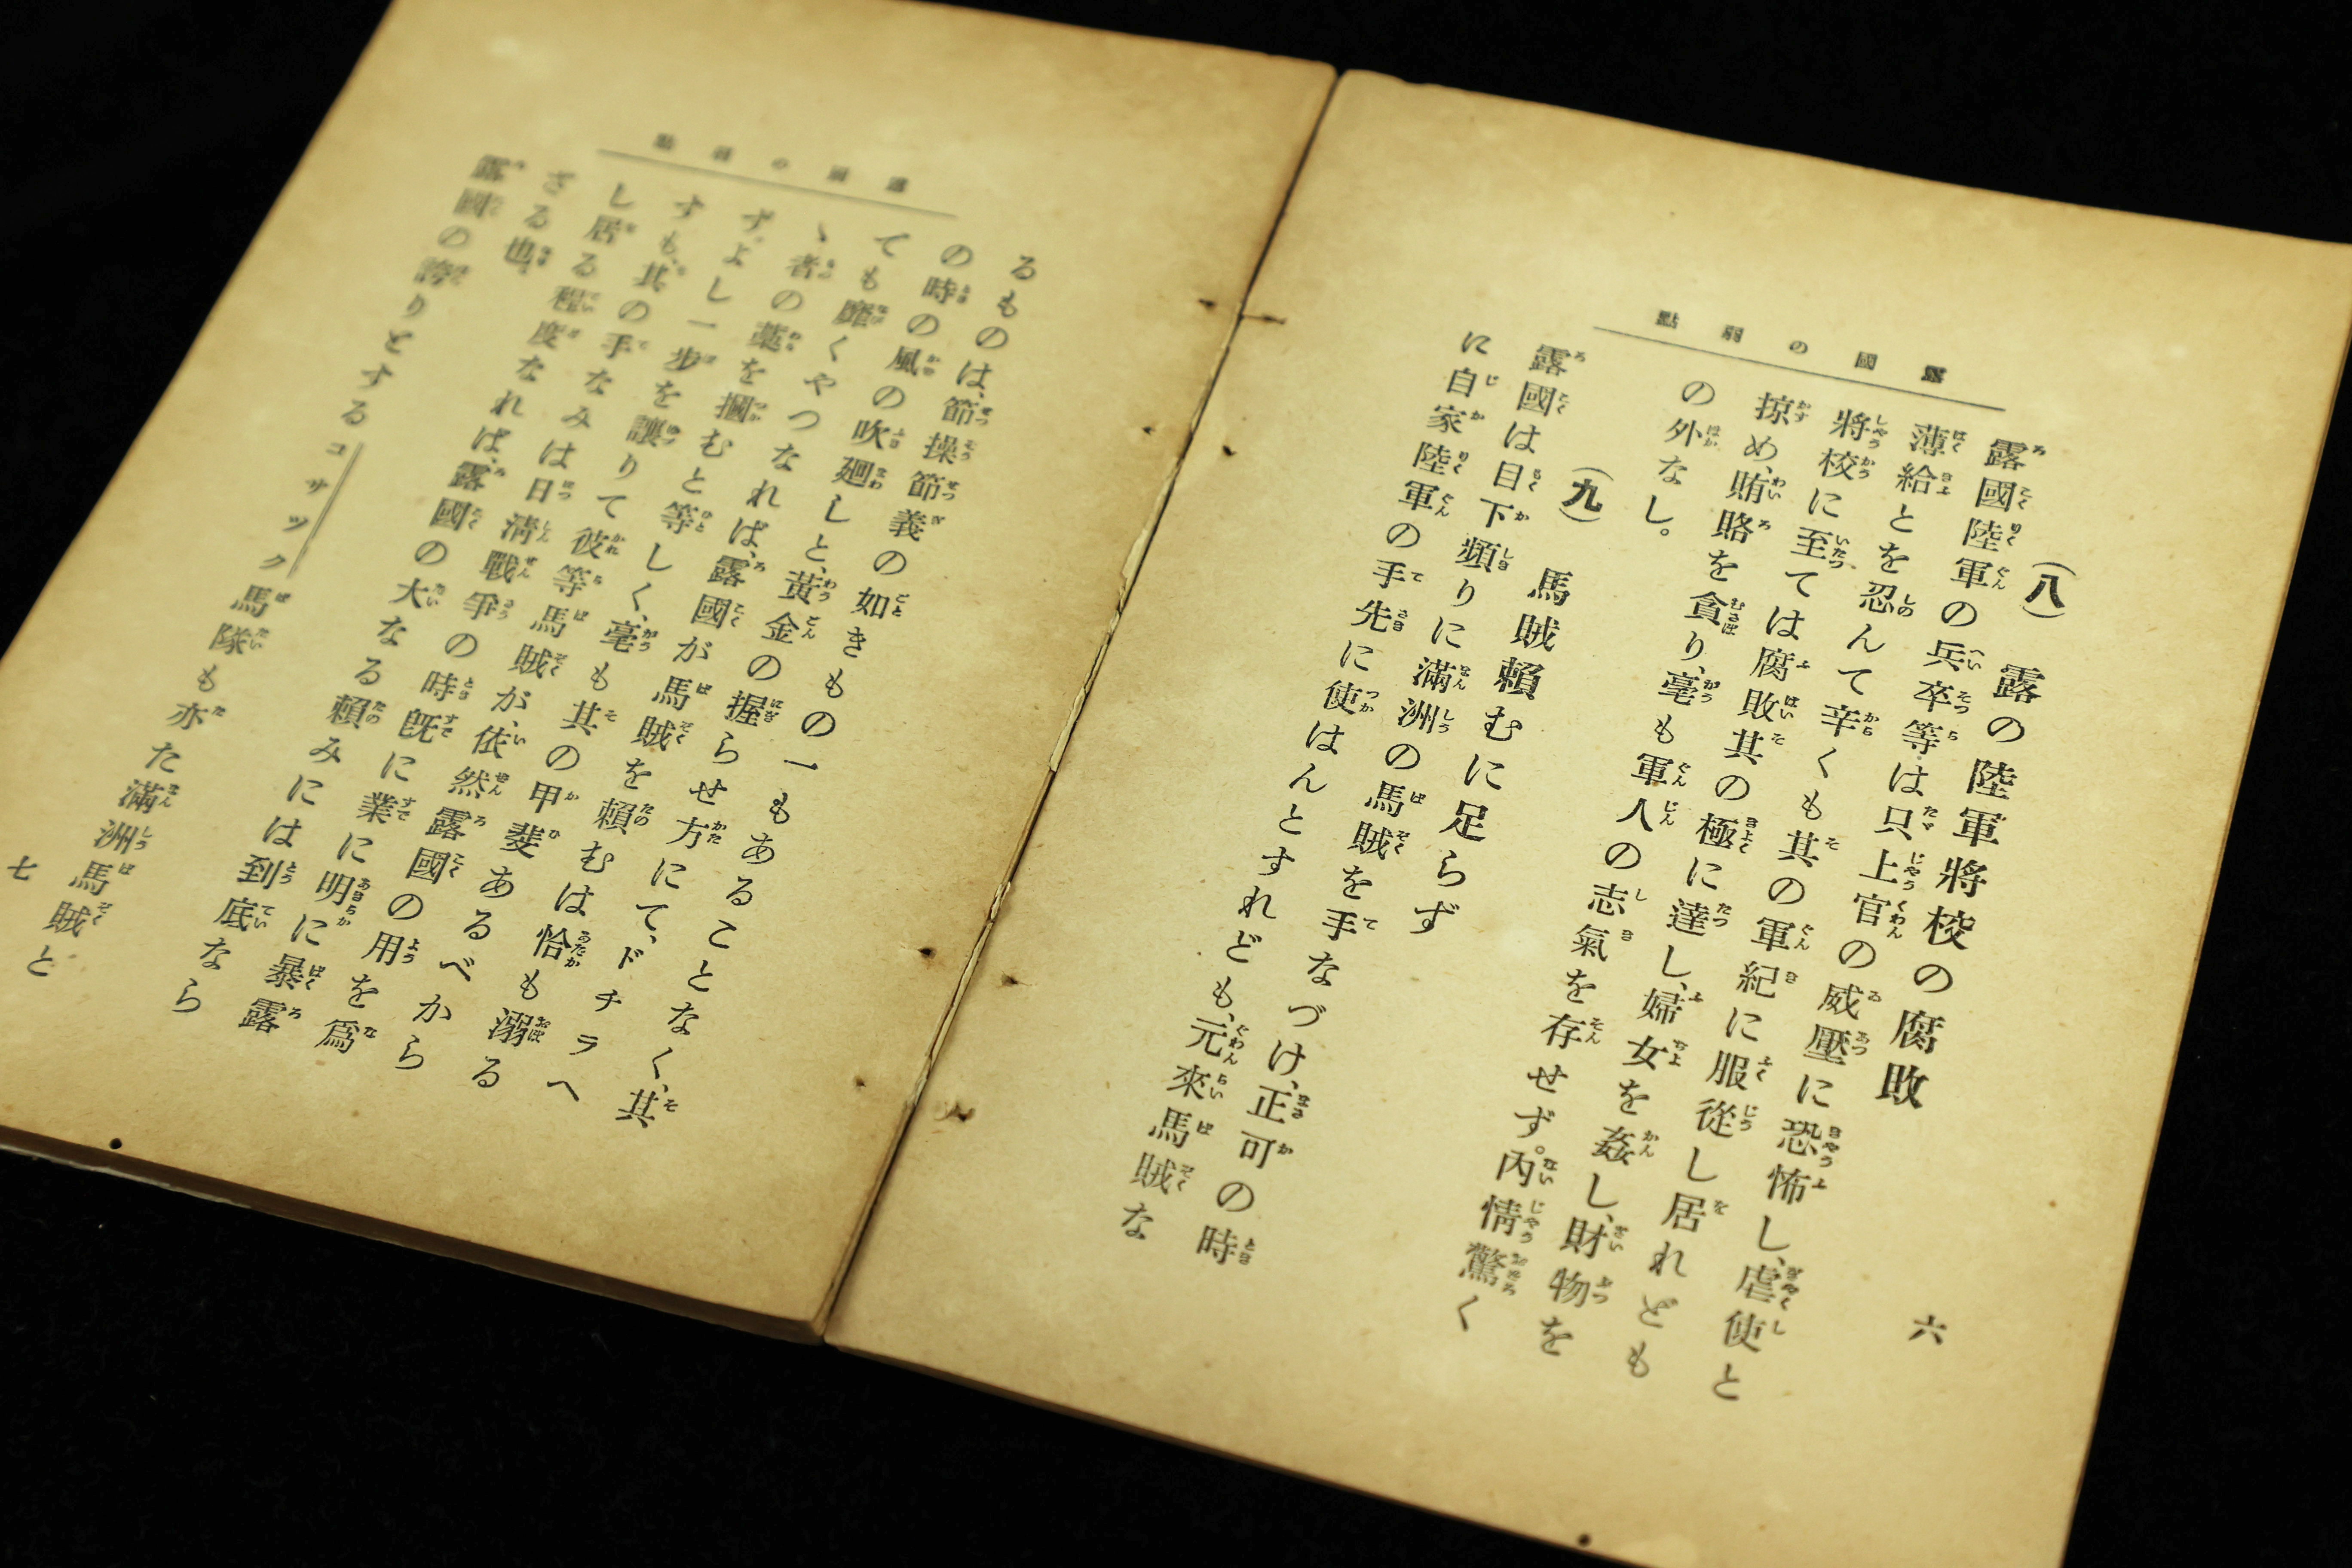 露國の弱點
六
（八）　露の陸軍將校の腐敗
露國陸軍の兵卒等は只上官の威壓に恐怖し、虐使と
薄給とを忍んて辛くも其の軍紀に服從し居れども
將校に至ては腐敗其の極に達し、婦女を姦し、財物を
掠め、賄賂を貪り、毫も軍人の志氣を存せず。內情驚く
の外なし。
（九）　馬賊賴むに足らず
露國は目下頻りに滿洲の馬賊を手なづけ、正可の時
に自家陸軍の手先に使はんとすれども、元來馬賊な
露國の弱點
るものは、節操節義の如きもの一もあることなく、其
の時の風の吹廻しと、黃金の握らせ方にて、ドチラへ
ても靡くやつなれば、露國が馬賊を賴むは恰も溺る
ゝ者の藁を摑むと等しく、毫も其の甲斐あるべから
ず。よし一步を讓りて彼等馬賊が、依然露國の用を爲
すも、其の手なみは日淸戰爭の時旣に業に明に暴露
し居る程度なれば、露國の大なる賴みには到底なら
ざる也。
露國の誇りとするコサック馬隊も亦た滿洲馬賊と
七